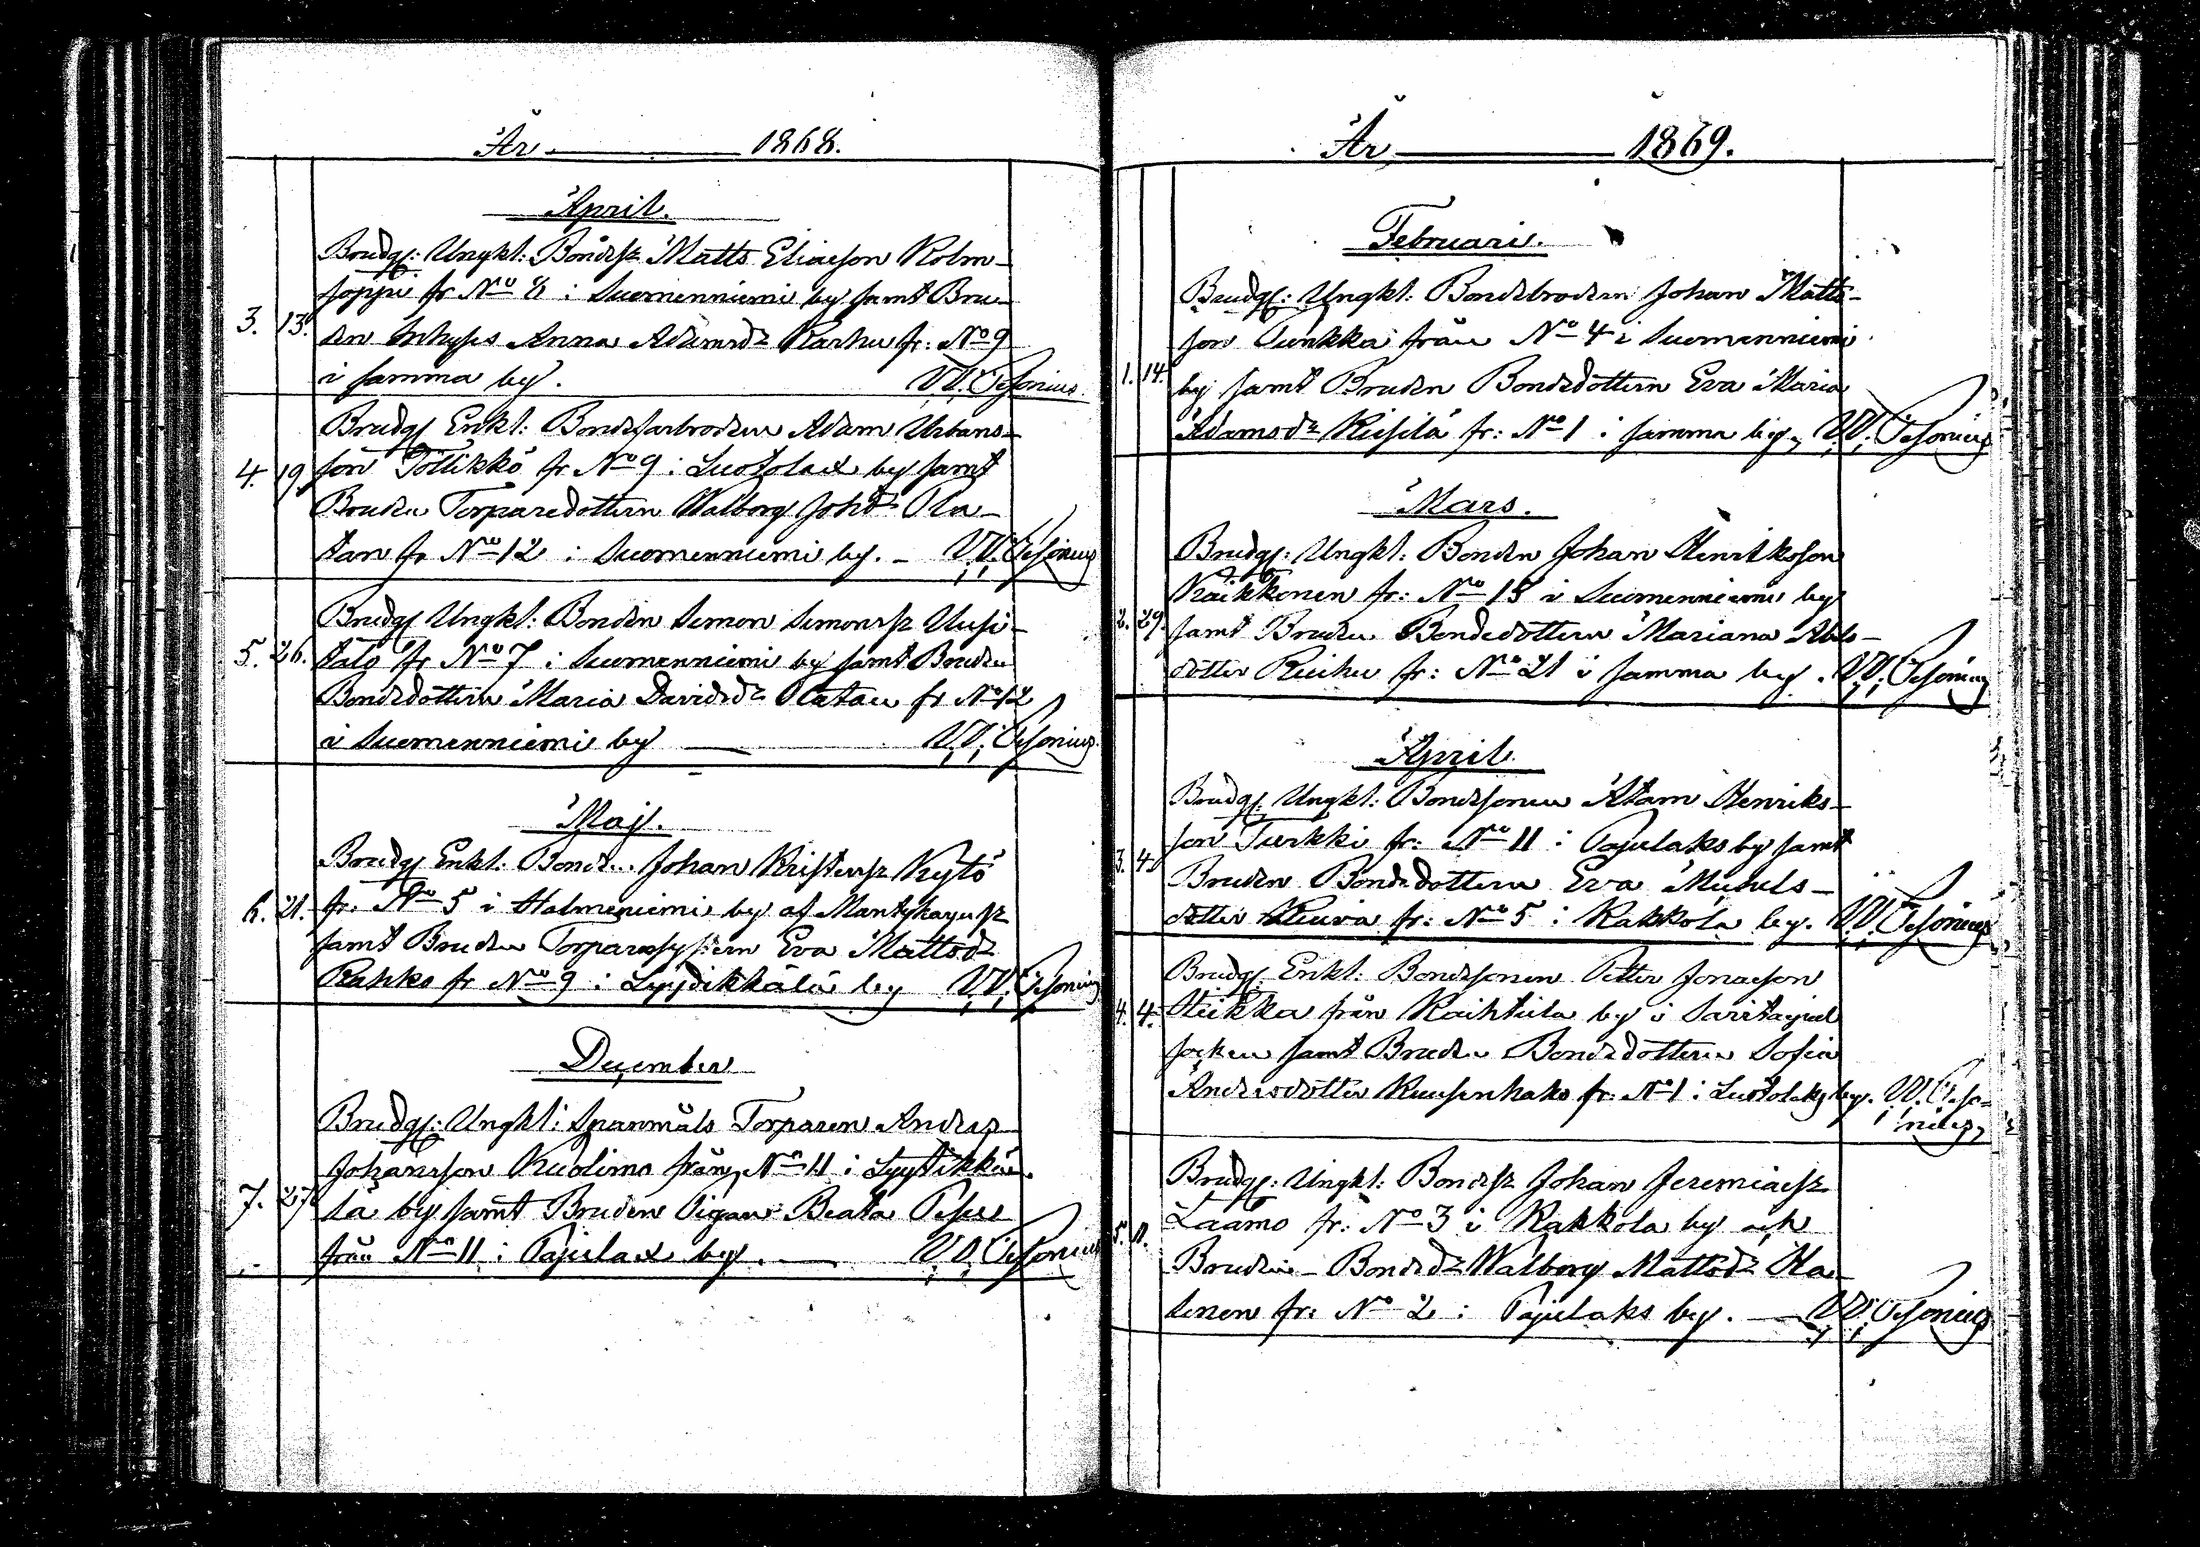 År 1868.
April.
Brudg: Ungkl: Bondes: Matts Eliasson Kolm-
soppi fr No 8 i Suomenniemi by samt Bru-
3. 13. den Inhyses Anna Adamsdr Karhu fr: No 9
i samma by. V.V. Cesonius.
Brudg Enkl: Bondefarbroden Adam Urbans-
4. 19. son Pöllikkö fr No 9 i Luotolax by samt
Bruden Torparedottern Walborg Johdr Ola-
tan fr No 12 i Suomenniemi by. - V.V. Cesonius
Brudg Ungkl: Bonden Simon Simonss Uusi-
5. 26. talo fr No 7 i Suomenniemi by samt Bruden
Bondedottern Maria Davidsdr Olatan fr No 12
i Suomenniemi by V.V. Cesonius
Maj.
Brudg Enkl: Bond... Johan Kristerss Kytö
6. 21. fr. No 5 i Halmeniemi by af Mantyharju s:
samt Bruden Torparesystern Eva Mattsdr
Rahko fr No 9 i Lyydikkälä by V.V. Cesonius
December
Brudg: Ungkl: Spanmåls Torparen Anders
Johansson Kuolimo från No 11 i Lyytikkä-
7. 27. lä by samt Bruden Pigan Beata Pesu
från No 11 i Pajulax by. V.V. Cesonius
År 1869.
Februari.
Brudg: Ungkl: Bondebrodern Johan Matts-
son Punkka från No 4 i Suomenniemi
1. 14. by samt Bruden Bondedottern Eva Maria
Adamsdr Kiesilä fr: No 1 i samma by, V.V. Cesonius
Mars.
Brudg: Ungkl: Bonden Johan Henriksson
Kaikkonen fr: No 15 i Suomenniemi by
2. 29. samt Bruden Bondedottern Mariana Abels-
dotter Kiuru fr: No 21 i samma by. V.V. Cesonius
April.
Brudg: Ungkl: Bondesonen Adam Henriks-
son Turkki fr: No 11 i Pajulaks by samt
3. 4. Bruden Bondedottern Eva Mickels-
dotter fr: No 5 i Kakkola by. V.V. Cesonius
Brudg Enkl: Bondesonen Petter Jonasson
4. 4. Heikka från Raihtula by i Savitaipal
socken samt Bruden Bondedottern Sofia
Andersdotter Kuusenhako fr: No 1 i Luotolaks by. V.V. Ceso-
nius,
Brudg: Ungkl: Bondes: Johan Jeremiass:
Laamo fr: No 3 i Kakkola by och
5. 11. Bruden - Bondedr Walborg Mattsdr Ha-
linen fr: No 2 i Pajulaks by. V.V. Cesonius